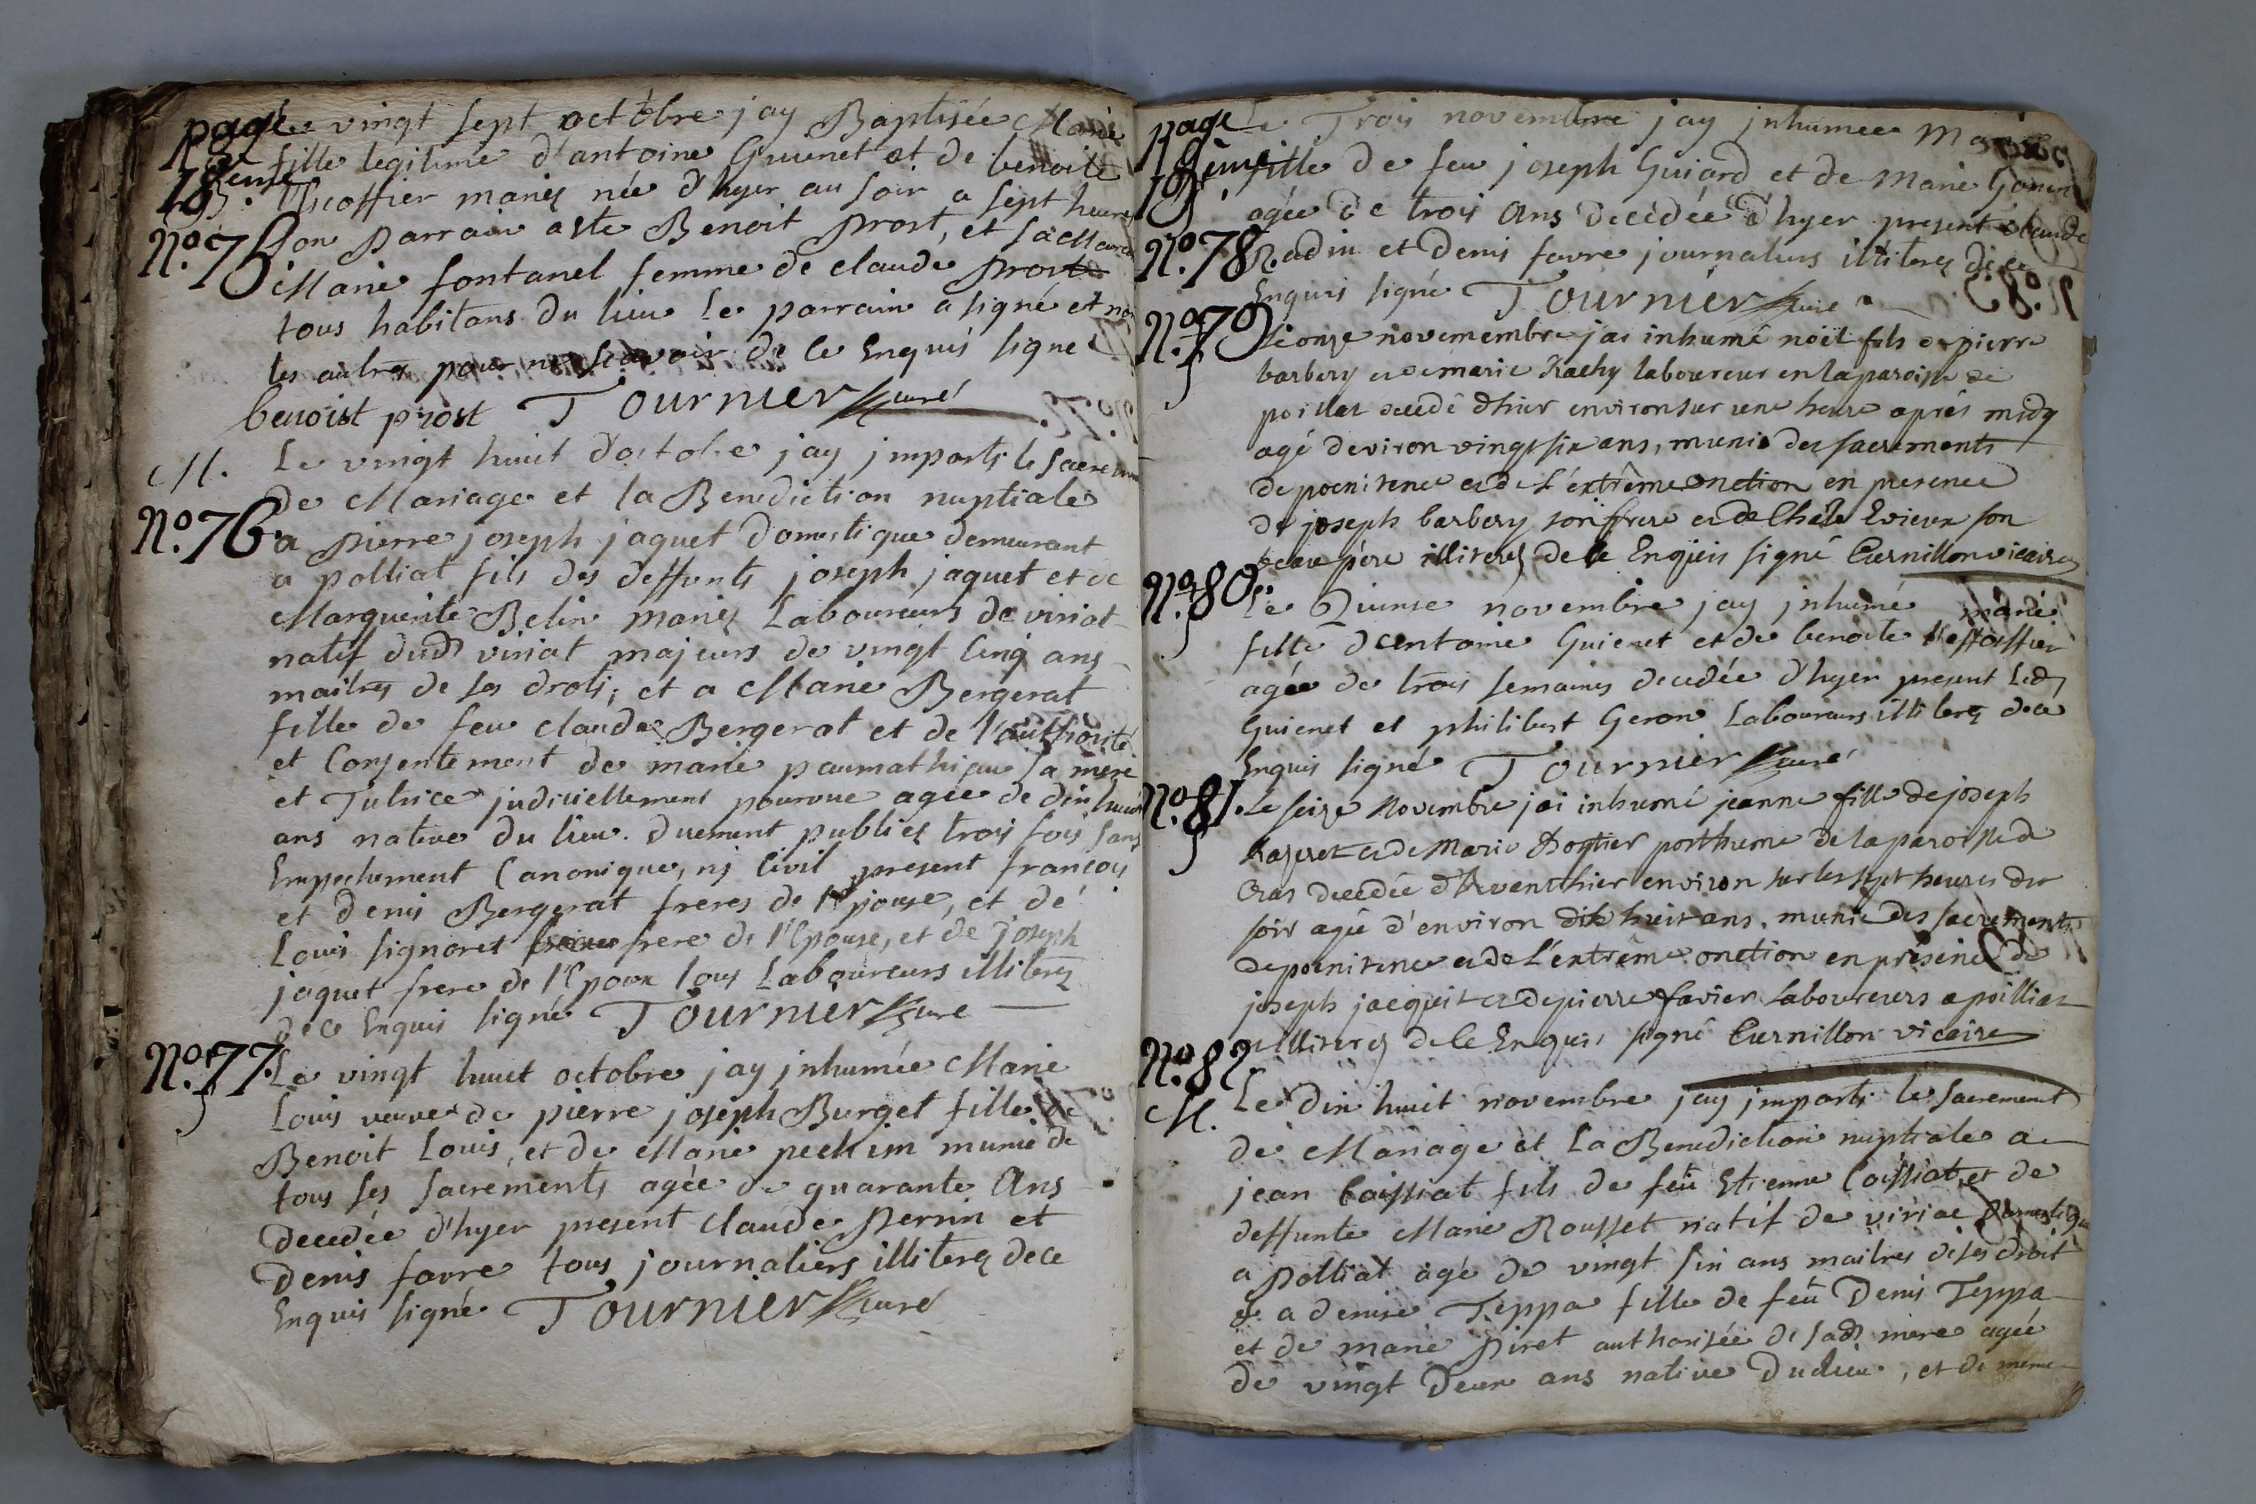 page
18eme
Le vingt sept octobre jay Baptisée Marie
fille legitime d'antoine Guienet et de benoite
mariez née d'hyer au soir a sept heures
No. 75
son parrain a ete Benoit Prost, et sa
Marie fontanel femme de claude prost
tous habitans du lieu le parrain a signé et non
les autres pour ne scavoir de ce Enquis signe
benoist prost Tournier curé
M.
Le vingt huit d'octobre jay jmparti le sacrement
de Mariage et la Benediction nuptiale
No. 76
a pierre joseph jaquet domestique demeurant
a polliat fils des deffunts joseph jaquet et de
Marguerite Belin mariez Laboureurs de viriat
natif dud viriat majeurs de vingt cinq ans
maitres de ses droits, et a Marie Bergerat
fille de feu claude Bergerat et de l'authorité
et Consentement de marie paumathiau sa mere
et Tutrice judiciellement pourvue agée de dix huit
ans native du lieu. duement publiés trois fois sans
Empechement Canonique, nj Civil present francois
et denis Bergerat freres de l'Epouse, et de
Louis signoret frere de l'Epouse, et de joseph
jaquet frere de l'Epoux tous Laboureurs illiterez
de ce Enquis signé Tournier curé
No. 77.
Le vingt huit octobre jay jnhumée Marie
Louis veuve de pierre joseph Burget fille de
Benoit Louis, et de Marie munie de
tous ses sacrements agée de quarante Ans
decedée d'hyer present claude perrin et
Denis favre tous journaliers illiterez de ce
Enquis signé Tournier curé
page
Le Trois novembre jay jnhumee
fille de feu joseph Guiard et de marie
agée de trois Ans decédée d'hyer present claude
No. 78.
Radin et Denis favre journaliers illiterez de ce
Enquis signé Tournier curé
No. 79
Le onze novemembre jai inhumé noël fils de pierre
barbery et de marie laboureur en la paroisse de
decedé d'hier environ sur une heure aprés midy
agé d'environ vingt six ans, muni des sacrements
de poenitence et de l'extrême onction en presence
de joseph barbery son frere et de son
beau pére illiterez de ce Enquis signé Curnillon vicaire
No. 80.
Le Quinse novembre jay jnhumé marie
fille d'antoine Guienet et de benoite
agée de trois semaines decedée d'hyer present led
Guienet et philibert Geron Laboureurs illiterez de ce
Enquis signé Tournier curé
No. 81.
Le seize novembre jai inhumé jeanne fille de joseph
et de Marie posthume de la paroisse de
Cras decedée d'Avant hier environ sur les sept heures du
soir agée d'environ dix huit ans, munie des sacrements
de poenitence et de L'extrême onction en présence de
joseph jacquet et de pierre favier laboureurs a poilliat
illiterez de Ce Enquis signé Curnillon vicaire
No. 82
M.
Le dix huit novembre jay jmparti le sacrement
de Mariage et La Benediction nuptiale a
jean Caissiat fils de feu Etienne Coissiat, et de
deffunte Marie Rousset natif de viriat Domestique
a polliat agé de vingt six ans maitres de ses droits
et a denise Teppa fille de feu Denis Teppa
et de marie piret authorisée de sad mere agée
de vingt Deux ans native du lieu, et de meme